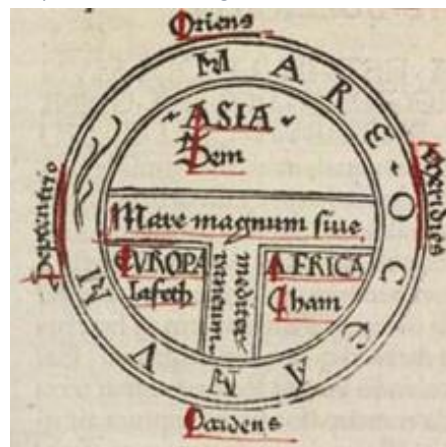 Oriens
MARE OCCEANVM
ASIA
Sem
Mare magnum siue
mediterraneum
EVROPA
Iafeth
AFRICA
Cham
Septentrio
Meridies
Occidens